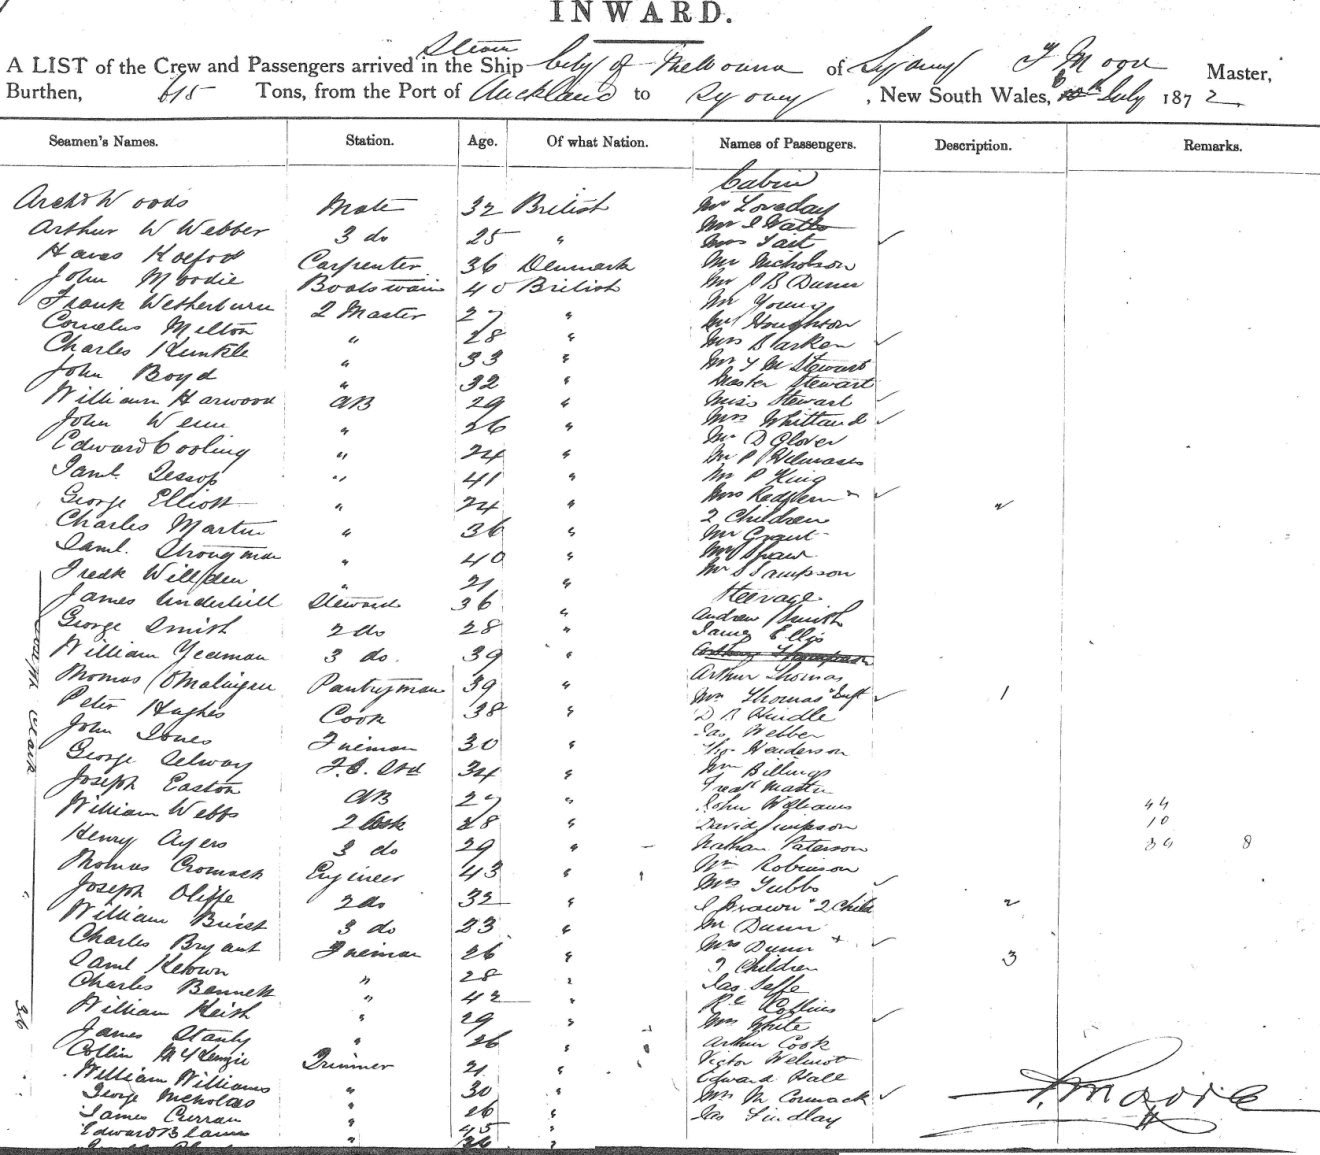 INWARD.
Steam
A LIST of the Crew and Passengers arrived in the Ship City of Melbourne of Sydney T Moore Master,
Burthen, 615 Tons, from the Port of Auckland to Sydney, New South Wales, 6th July 1872
Seamen's Names. Station. Age. Of what Nation. Names of Passengers. Description. Remarks.
Cabin
Archd Woods Mate 32 British Mr Loveday
Arthur W Webber 3 do 25 " Mr J Watts
Mrs Tait
36 Denmark Mr Nicholson
Carpenter
John Moodie Boatswain 40 British Mr J B Dunn
Frank Wetherburn 2 Master 27 " Mr Young
Cornelus Melton " 28 " Houghton
Charles Kunkle " 33 " Mrs Larken
Mr T M Stewart
John Boyd " 32 " Master Stewart
William Harwood AB 29 " Miss Stewart
John Wenn " 26 " Mrs
Mr D Glover
Edward Cooling " 24 " Mr P
Saml Jessop " 41 " Mr P King
George Elliott " 24 " Mrs Redfern 2
2 Children
Charles Martin " 36 " Mr Grant
Saml. Strongman " 40 " Shaw
Fredk 21 " Mr S Sampson
James Underhill Steward 36 " Steerage
Andrew Smith
George Smith 2 do 28 " James Ellis
William Yeaman 3 do. 39 "
Arthur Thomas
Thomas Pantryman 39 " Mrs Thomas " Inft 1
Peter Hughes Cook 38 " D R Hindle
Jas Webber
John Jones Fireman 30 " Thos Henderson
George Selway F.C. Std 34 " Wm Billings
Fredk Martin
Joseph Easton AB 27 " John Williams 44
William Webbs 2 Cook 28 " David Simpson 10
Henry Ayers 3 do 29 " Nathan Paterson 34 8
Thomas Cromack Engineer 43 " Wm Robinson
Mrs Tubbs
Joseph Oliffe 2 do 32 " J Brown " 2 Child 2
William 3 do 23 " Mr Dunn
Charles Bryant Fireman 26 " Mrs Dunn +
3 Children 3
Saml Keown " 28 " Jas
Charles Bennett " 42 " Rt Collins
William Keith " 29 " Mrs White
James Stanly " 26 " Arthur Cook
Collin McKenzie Trimmer 21 " Victor Welmot
William Williams " 30 " Edward Hall
George Nicholas " 26 " Mrs McCormack
James Curran " 45 " Jas Findlay
Edward " 24 "
T Moore
36